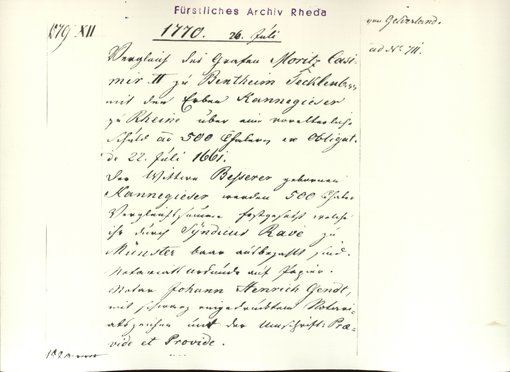 Fürstliches Archiv Rheda
1770. 26. Juli
von Gelderland.
ad No. 74.
Vergleich des Grafen Moritz Casi-
mir II zu Bentheim Tecklenburg
mit den Erben Kannegieser
zu Rheine über eine vorelterliche
Schuld ad 500 Thaler ex Obligat.
de 22. Juli 1661.
Der Wittwe Besserer gebornen
Kannegieser werden 500 Thaler
Vergleichssumme festgesetzt welche
ihr durch Syndicus Rave zu
Münster baar ausbezahlt sind.
Notariatsurkunde auf Papier.
Notar Johann Henrich Gendt,
mit schwarz eingedrucktem Notari-
atszeichen mit der Umschrift: Præ-
vide et Provide.